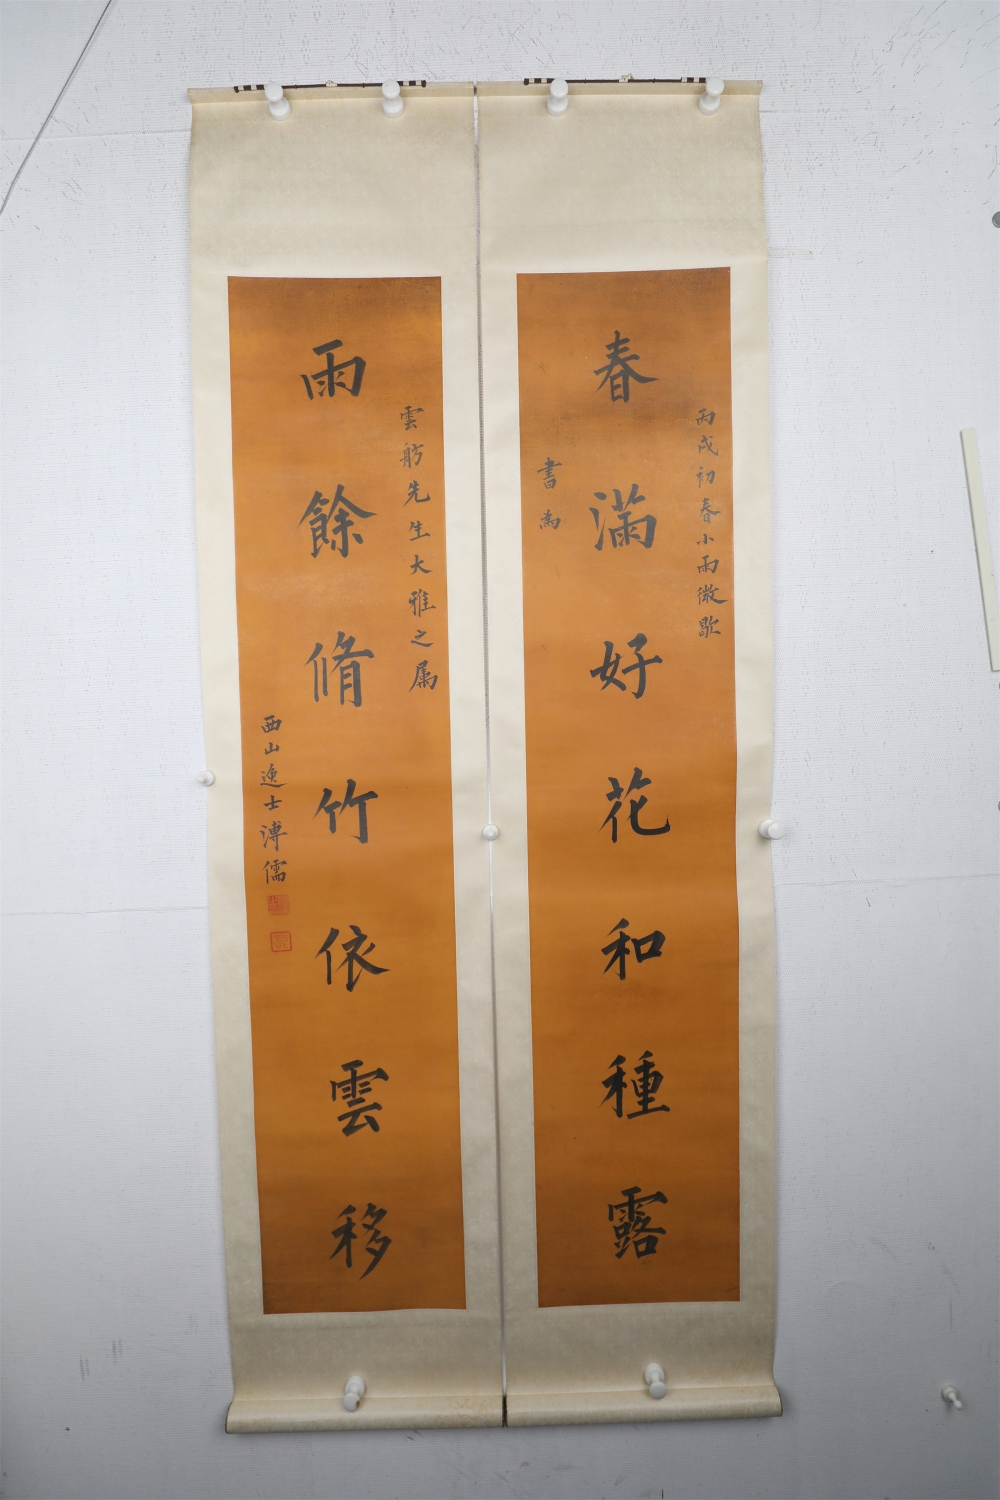 丙戌初春小雨微歇
春滿好花和種露
書為
雲舫先生大雅之属
雨餘脩竹依雲移
西山逸士溥儒